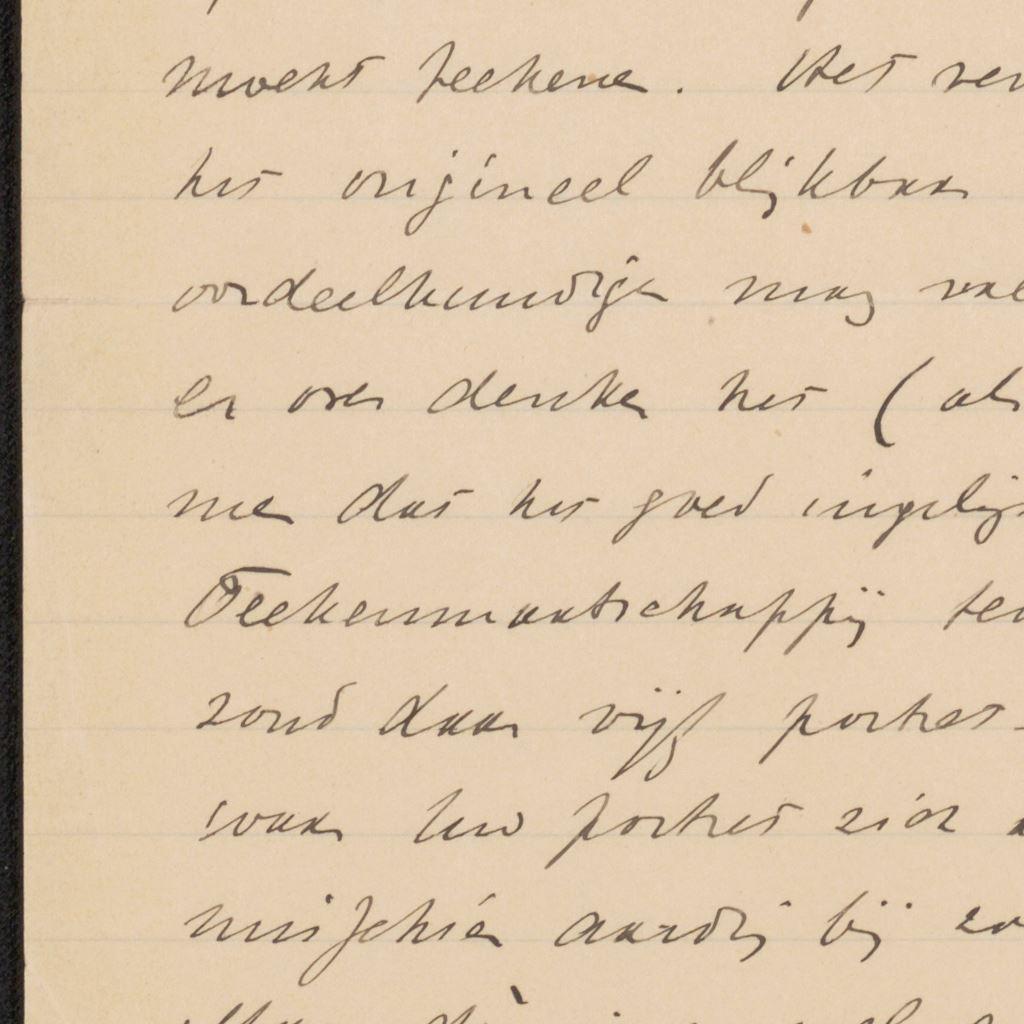 mocht teekenen. Het ver
het origineel blijkbaar
oordeelkundige mag
er over denken het ( als
me dat het goed ingelijst
Teekenmaatschappij ten
zond daar vijf portret-
waar uw portret zich
misschien aardig bij